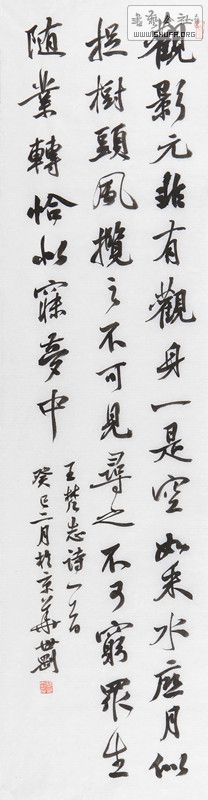 书法公社
WWW.SHUFA.ORG
觀影元非有觀身一是空如采水底月似
捉樹頭風攬之不可見尋之不可窮眾生
随業轉恰似寐夢中
王梵志詩一首
癸巳二月於京華